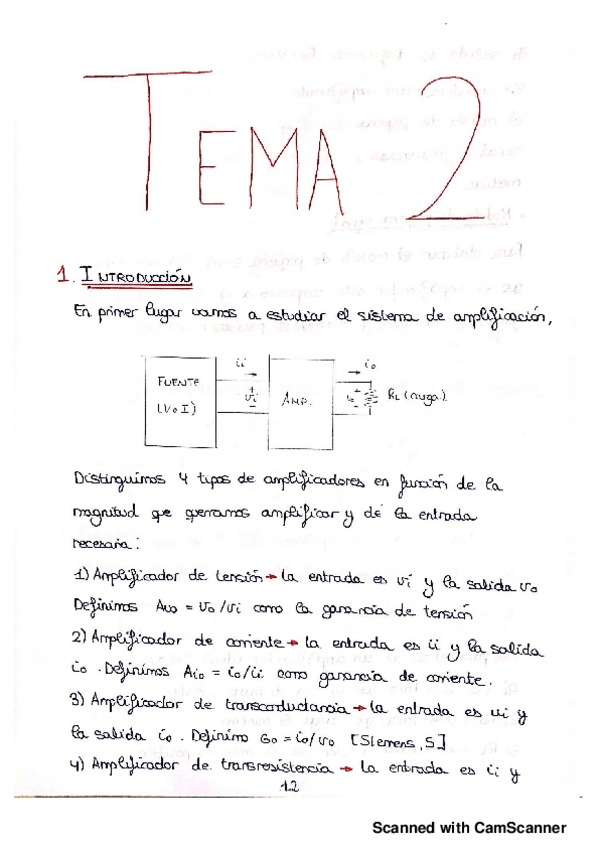 TEMA 2
1. INTRODUCCIÓN
En primer lugar vamos a estudiar el sistema de amplificación,
FUENTE
(V o I)
ii
+
vi
-
AMP.
io
+
vo
-
RL (carga)
Distinguimos 4 tipos de amplificadores en función de la
magnitud que queramos amplificar y de la entrada
necesaria:
1) Amplificador de tensión → la entrada es vi y la salida vo
Definimos Avo = vo/vi como la ganancia de tensión
2) Amplificador de corriente → la entrada es ii y la salida
io. Definimos Aio = io/ii como ganancia de corriente.
3) Amplificador de transconductancia → la entrada es vi y
la salida io. Definimo Go = io/vo [Siemens, S]
4) Amplificador de transresistencia → la entrada es ii y
12
Scanned with CamScanner